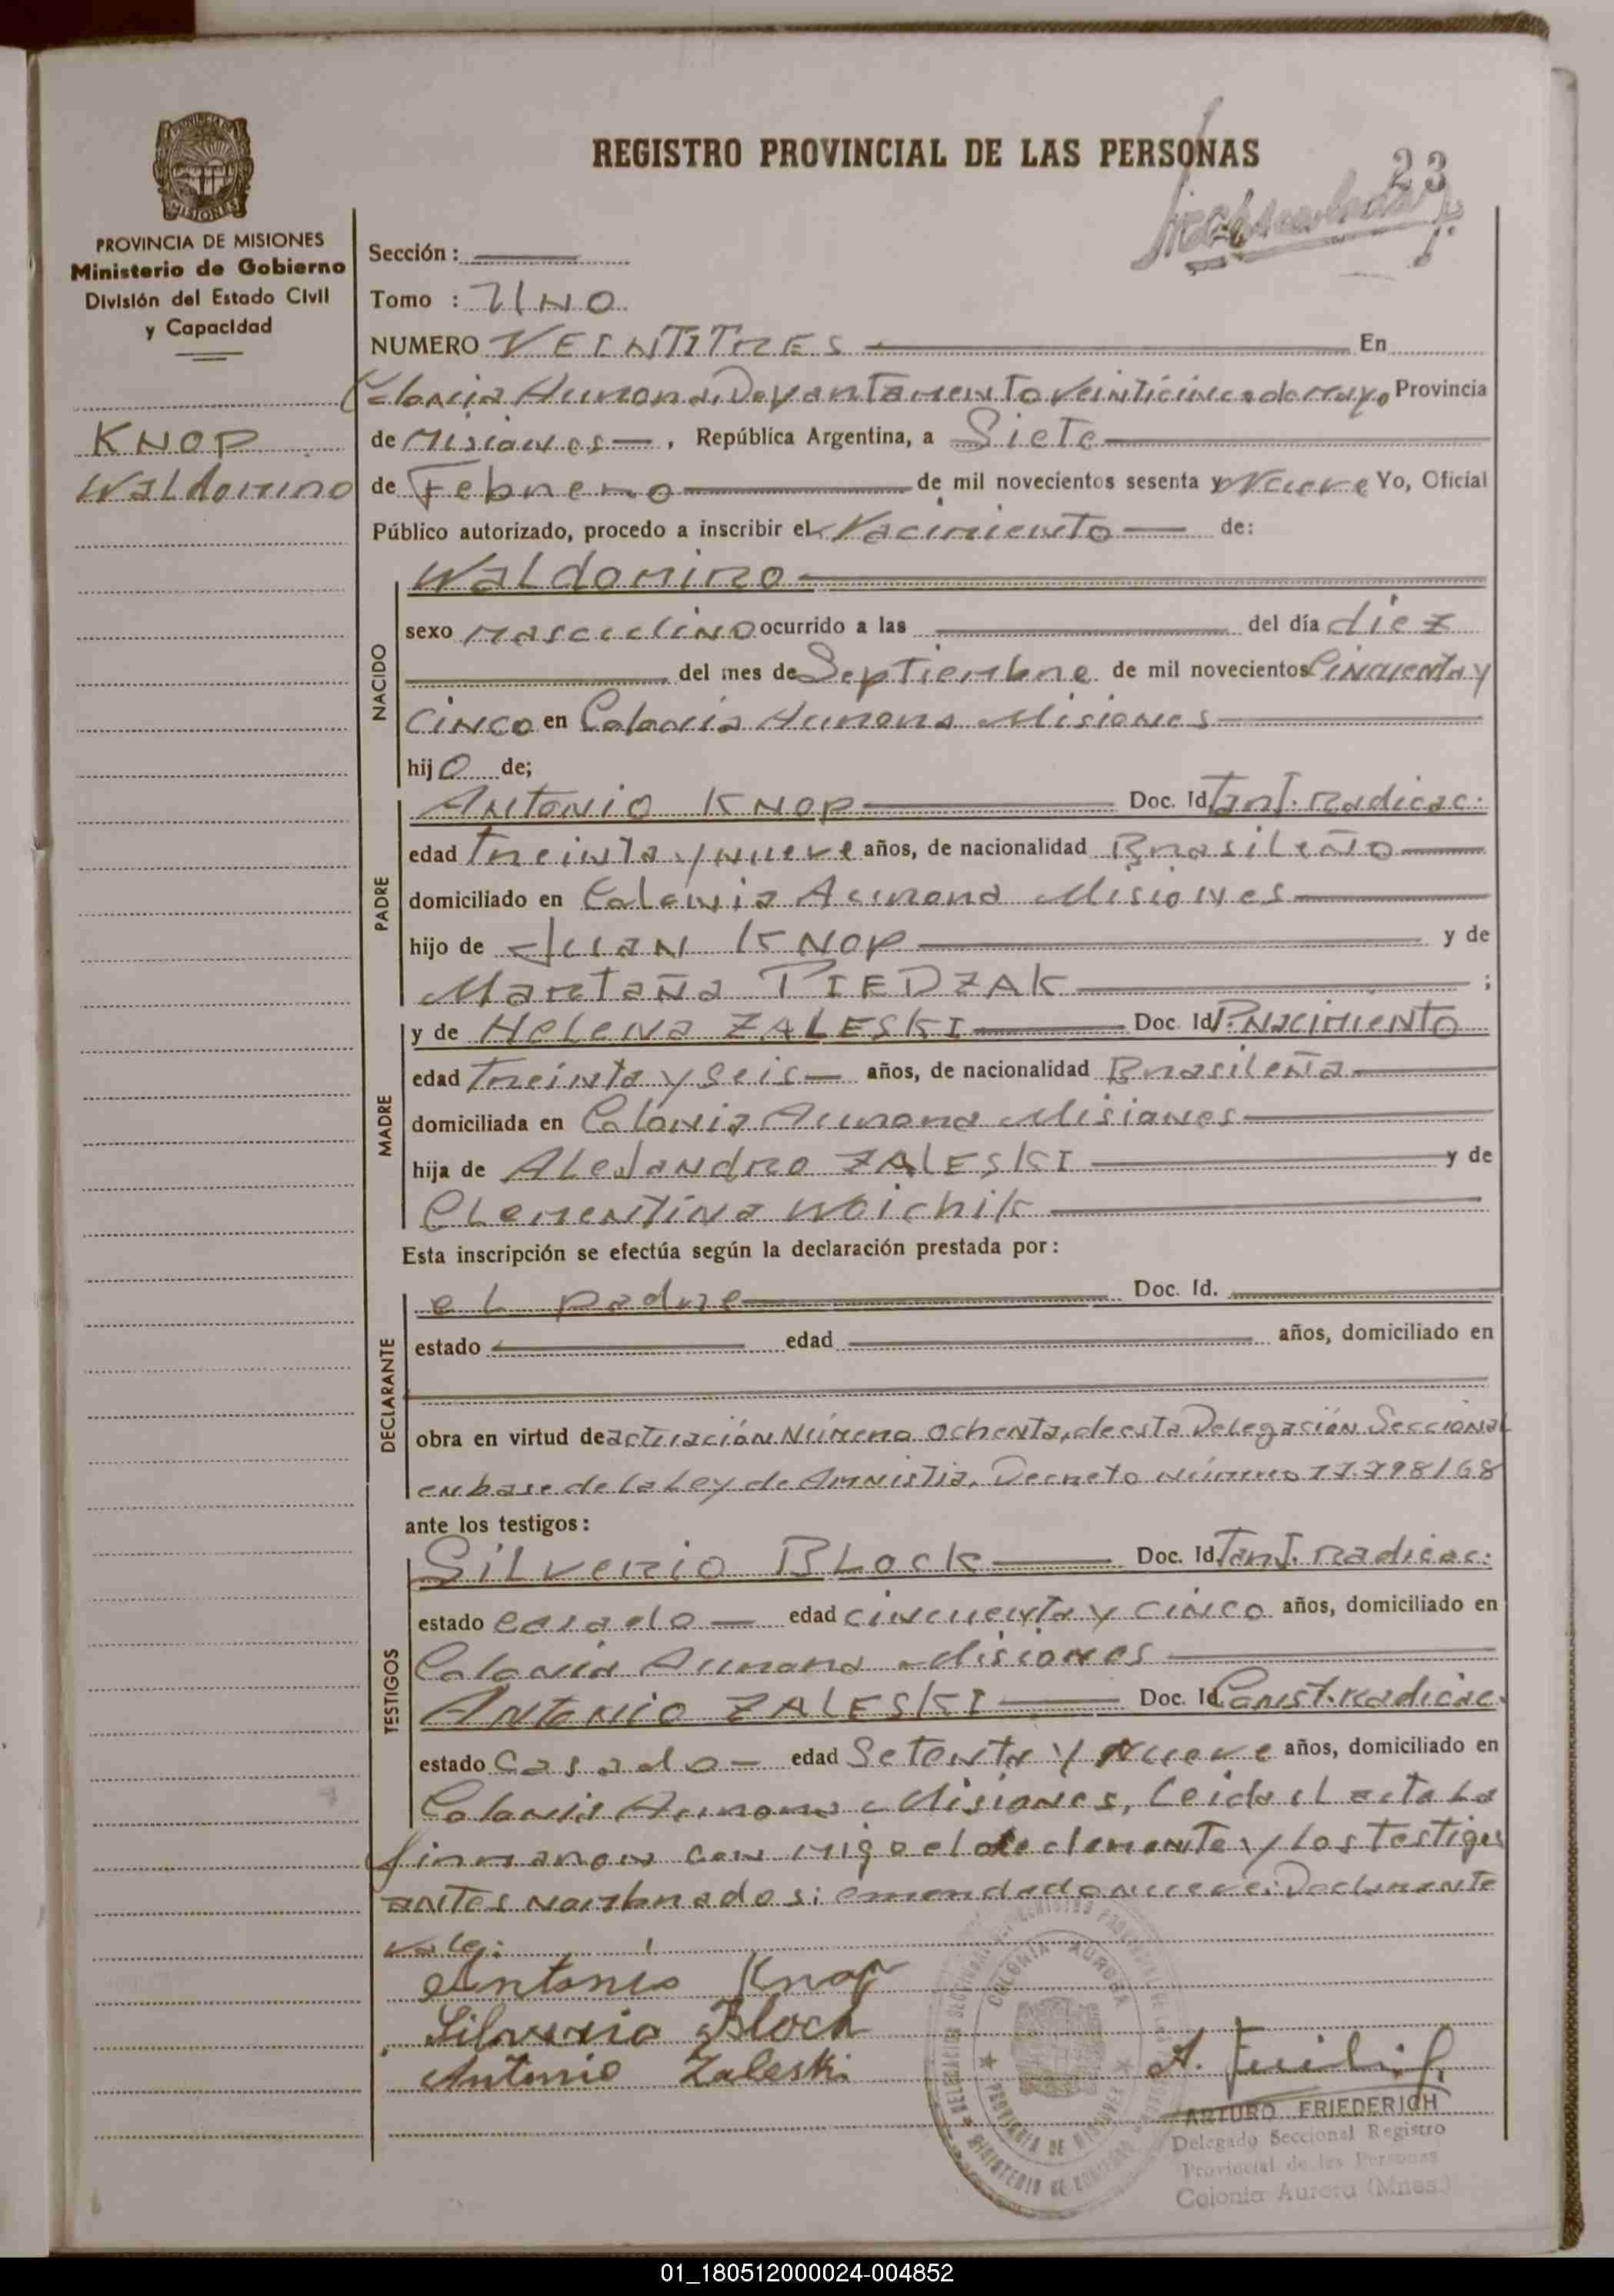 REGISTRO PROVINCIAL DE LAS PERSONAS
23
PROVINCIA DE MISIONES
Ministerio de Gobierno
División del Estado Civil
y Capacidad
KNOP
Waldomiro
Sección :
Tomo : UNO
NUMERO VEINTITRES En
Colonia Aurora, Departamento Veinticinco de Mayo Provincia
de Misiones , República Argentina, a Siete
de Febrero de mil novecientos sesenta y Nueve Yo, Oficial
Público autorizado, procedo a inscribir el Nacimiento de:
Waldomiro
NACIDO
sexo Masculino ocurrido a las del día diez
del mes de Septiembre de mil novecientos Cincuenta y
Cinco en Colonia Aurora Misiones
hijo de;
PADRE
Antonio KNOP Doc. Id Tarj. Radicac.
edad Treinta y nueve años, de nacionalidad Brasileño
domiciliado en Colonia Aurora Misiones
hijo de Juan KNOP y de
Martaña PIEDZAK ;
MADRE
y de Helena ZALESKI Doc. Id P. Nacimiento
edad Treinta y seis años, de nacionalidad Brasileña
domiciliada en Colonia Aurora Misiones
hija de Alejandro ZALESKI y de
Clementina Woichik
Esta inscripción se efectúa según la declaración prestada por:
DECLARANTE
el padre Doc. Id.
estado edad años, domiciliado en
obra en virtud de actuación Número ochenta, de esta Delegación Seccional
en base de la Ley de Amnistia. Decreto número 17.798/68
ante los testigos:
TESTIGOS
Silverio Block Doc. Id. Tarj. Radicac.
estado casado edad cincuenta y cinco años, domiciliado en
Colonia Aurora Misiones
Antonio ZALESKI Doc. Id Const. Radicac.
estado Casado edad Setenta y Nueve años, domiciliado en
Colonia Aurora Misiones, Leida el acta la
firmaron con migo el declarante y los testigos
antes nombrados: emendado nueve: Declarante
vale:
Antonio Knop
Silverio Bloch
Antonio Zaleski
COLONIA AURORA
PROVINCIA DE MISIONES
ARTURO FRIEDERICH
Delegado Seccional Registro
Provincial de las Personas
Colonia Aurora (Mnes.)
01_180512000024-004852